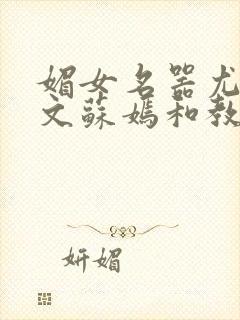 媚女名器尤
文蘇媽和教
妍媚